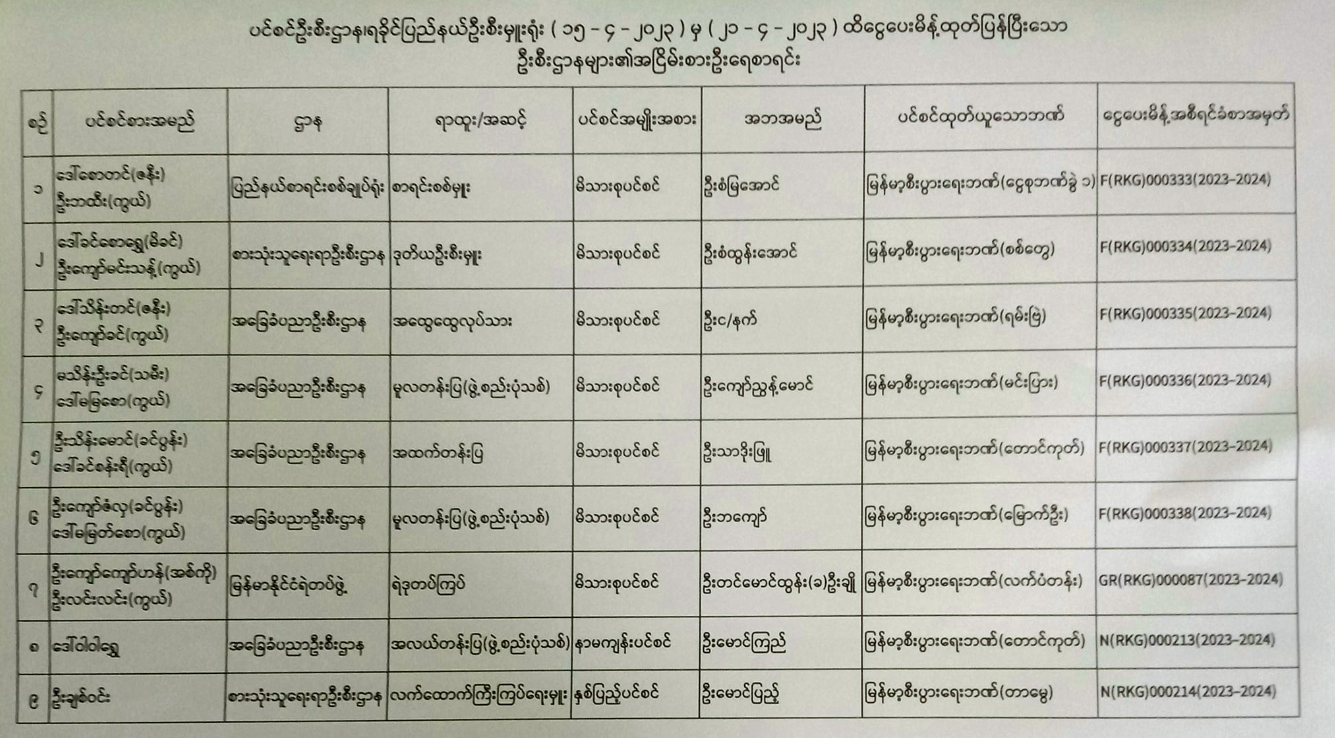 ပင်စင်ဦးစီးဌာန၊ရခိုင်ပြည်နယ်ဦးစီးမှူးရုံး ( ၁၅ – ၄ – ၂၀၂၃ ) မှ ( ၂၁ – ၄ – ၂၀၂၃ ) ထိငွေပေးမိန့်ထုတ်ပြန်ပြီးသော
ဦးစီးဌာနများ၏အငြိမ်းစားဦးရေစာရင်း
စဉ် ပင်စင်စားအမည် ဌာန ရာထူး/အဆင့် ပင်စင်အမျိုးအစား အဘအမည် ပင်စင်ထုတ်ယူသောဘဏ် ငွေပေးမိန့်အစီရင်ခံစာအမှတ်
၁ ဒေါ်စောတင်(ဇနီး) ပြည်နယ်စာရင်းစစ်ချုပ်ရုံး စာရင်းစစ်မှူး မိသားစုပင်စင် ဦးစံမြအောင် မြန်မာ့စီးပွားရေးဘဏ်(ငွေစုဘဏ်ခွဲ ၁) F(RKG)000333(2023-2024)
ဦးဘထီး(ကွယ်)
၂ ဒေါ်ခင်စောရွှေ(မိခင်) စားသုံးသူရေးရာဦးစီးဌာန ဒုတိယဦးစီးမှူး မိသားစုပင်စင် ဦးစံထွန်းအောင် မြန်မာ့စီးပွားရေးဘဏ်(စစ်တွေ) F(RKG)000334(2023-2024)
ဦးကျော်မင်းသန့်(ကွယ်)
၃ ဒေါ်သိန်းတင်(ဇနီး) အခြေခံပညာဦးစီးဌာန အထွေထွေလုပ်သား မိသားစုပင်စင် ဦးင/နက် မြန်မာ့စီးပွားရေးဘဏ်(ရမ်းဗြဲ) F(RKG)000335(2023-2024)
ဦးကျော်ခင်(ကွယ်)
၄ မသိန်းဦးခင်(သမီး) အခြေခံပညာဦးစီးဌာန မူလတန်းပြ(ဖွဲ့စည်းပုံသစ်) မိသားစုပင်စင် ဦးကျော်ညွန့်မောင် မြန်မာ့စီးပွားရေးဘဏ်(မင်းပြား) F(RKG)000336(2023-2024)
ဒေါ်မမြစော(ကွယ်)
၅ ဦးသိန်းမောင်(ခင်ပွန်း) အခြေခံပညာဦးစီးဌာန အထက်တန်းပြ မိသားစုပင်စင် ဦးသာဒိုးဖြူ မြန်မာ့စီးပွားရေးဘဏ်(တောင်ကုတ်) F(RKG)000337(2023-2024)
ဒေါ်ခင်စန်းရီ(ကွယ်)
၆ ဦးကျော်ဇံလှ(ခင်ပွန်း) အခြေခံပညာဦးစီးဌာန မူလတန်းပြ(ဖွဲ့စည်းပုံသစ်) မိသားစုပင်စင် ဦးဘကျော် မြန်မာ့စီးပွားရေးဘဏ်(မြောက်ဦး) F(RKG)000338(2023-2024)
ဒေါ်မမြတ်စော(ကွယ်)
၇ ဦးကျော်ကျော်ဟန်(အစ်ကို) မြန်မာနိုင်ငံရဲတပ်ဖွဲ့ ရဲဒုတပ်ကြပ် မိသားစုပင်စင် ဦးတင်မောင်ထွန်း(ခ)ဦးချို မြန်မာ့စီးပွားရေးဘဏ်(လက်ပံတန်း) GR(RKG)000087(2023-2024)
ဦးလင်းလင်း(ကွယ်)
၈ ဒေါ်ဝါဝါရွှေ အခြေခံပညာဦးစီးဌာန အလယ်တန်းပြ(ဖွဲ့စည်းပုံသစ်) နာမကျန်းပင်စင် ဦးမောင်ကြည် မြန်မာ့စီးပွားရေးဘဏ်(တောင်ကုတ်) N(RKG)000213(2023-2024)
၉ ဦးချစ်ဝင်း စားသုံးသူရေးရာဦးစီးဌာန လက်ထောက်ကြီးကြပ်ရေးမှူး နှစ်ပြည့်ပင်စင် ဦးမောင်ပြည့် မြန်မာ့စီးပွားရေးဘဏ်(တာမွေ) N(RKG)000214(2023-2024)